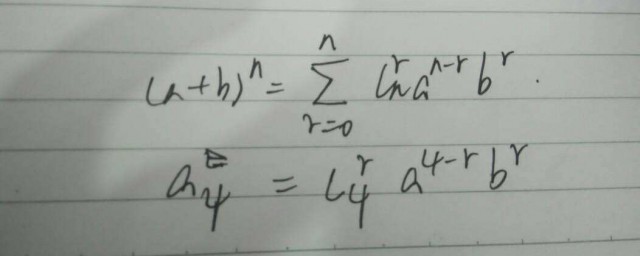 (a+b)^n = \sum_{r=0}^{n} C_n^r a^{n-r} b^r.
a_4 = C_4^r a^{4-r} b^r